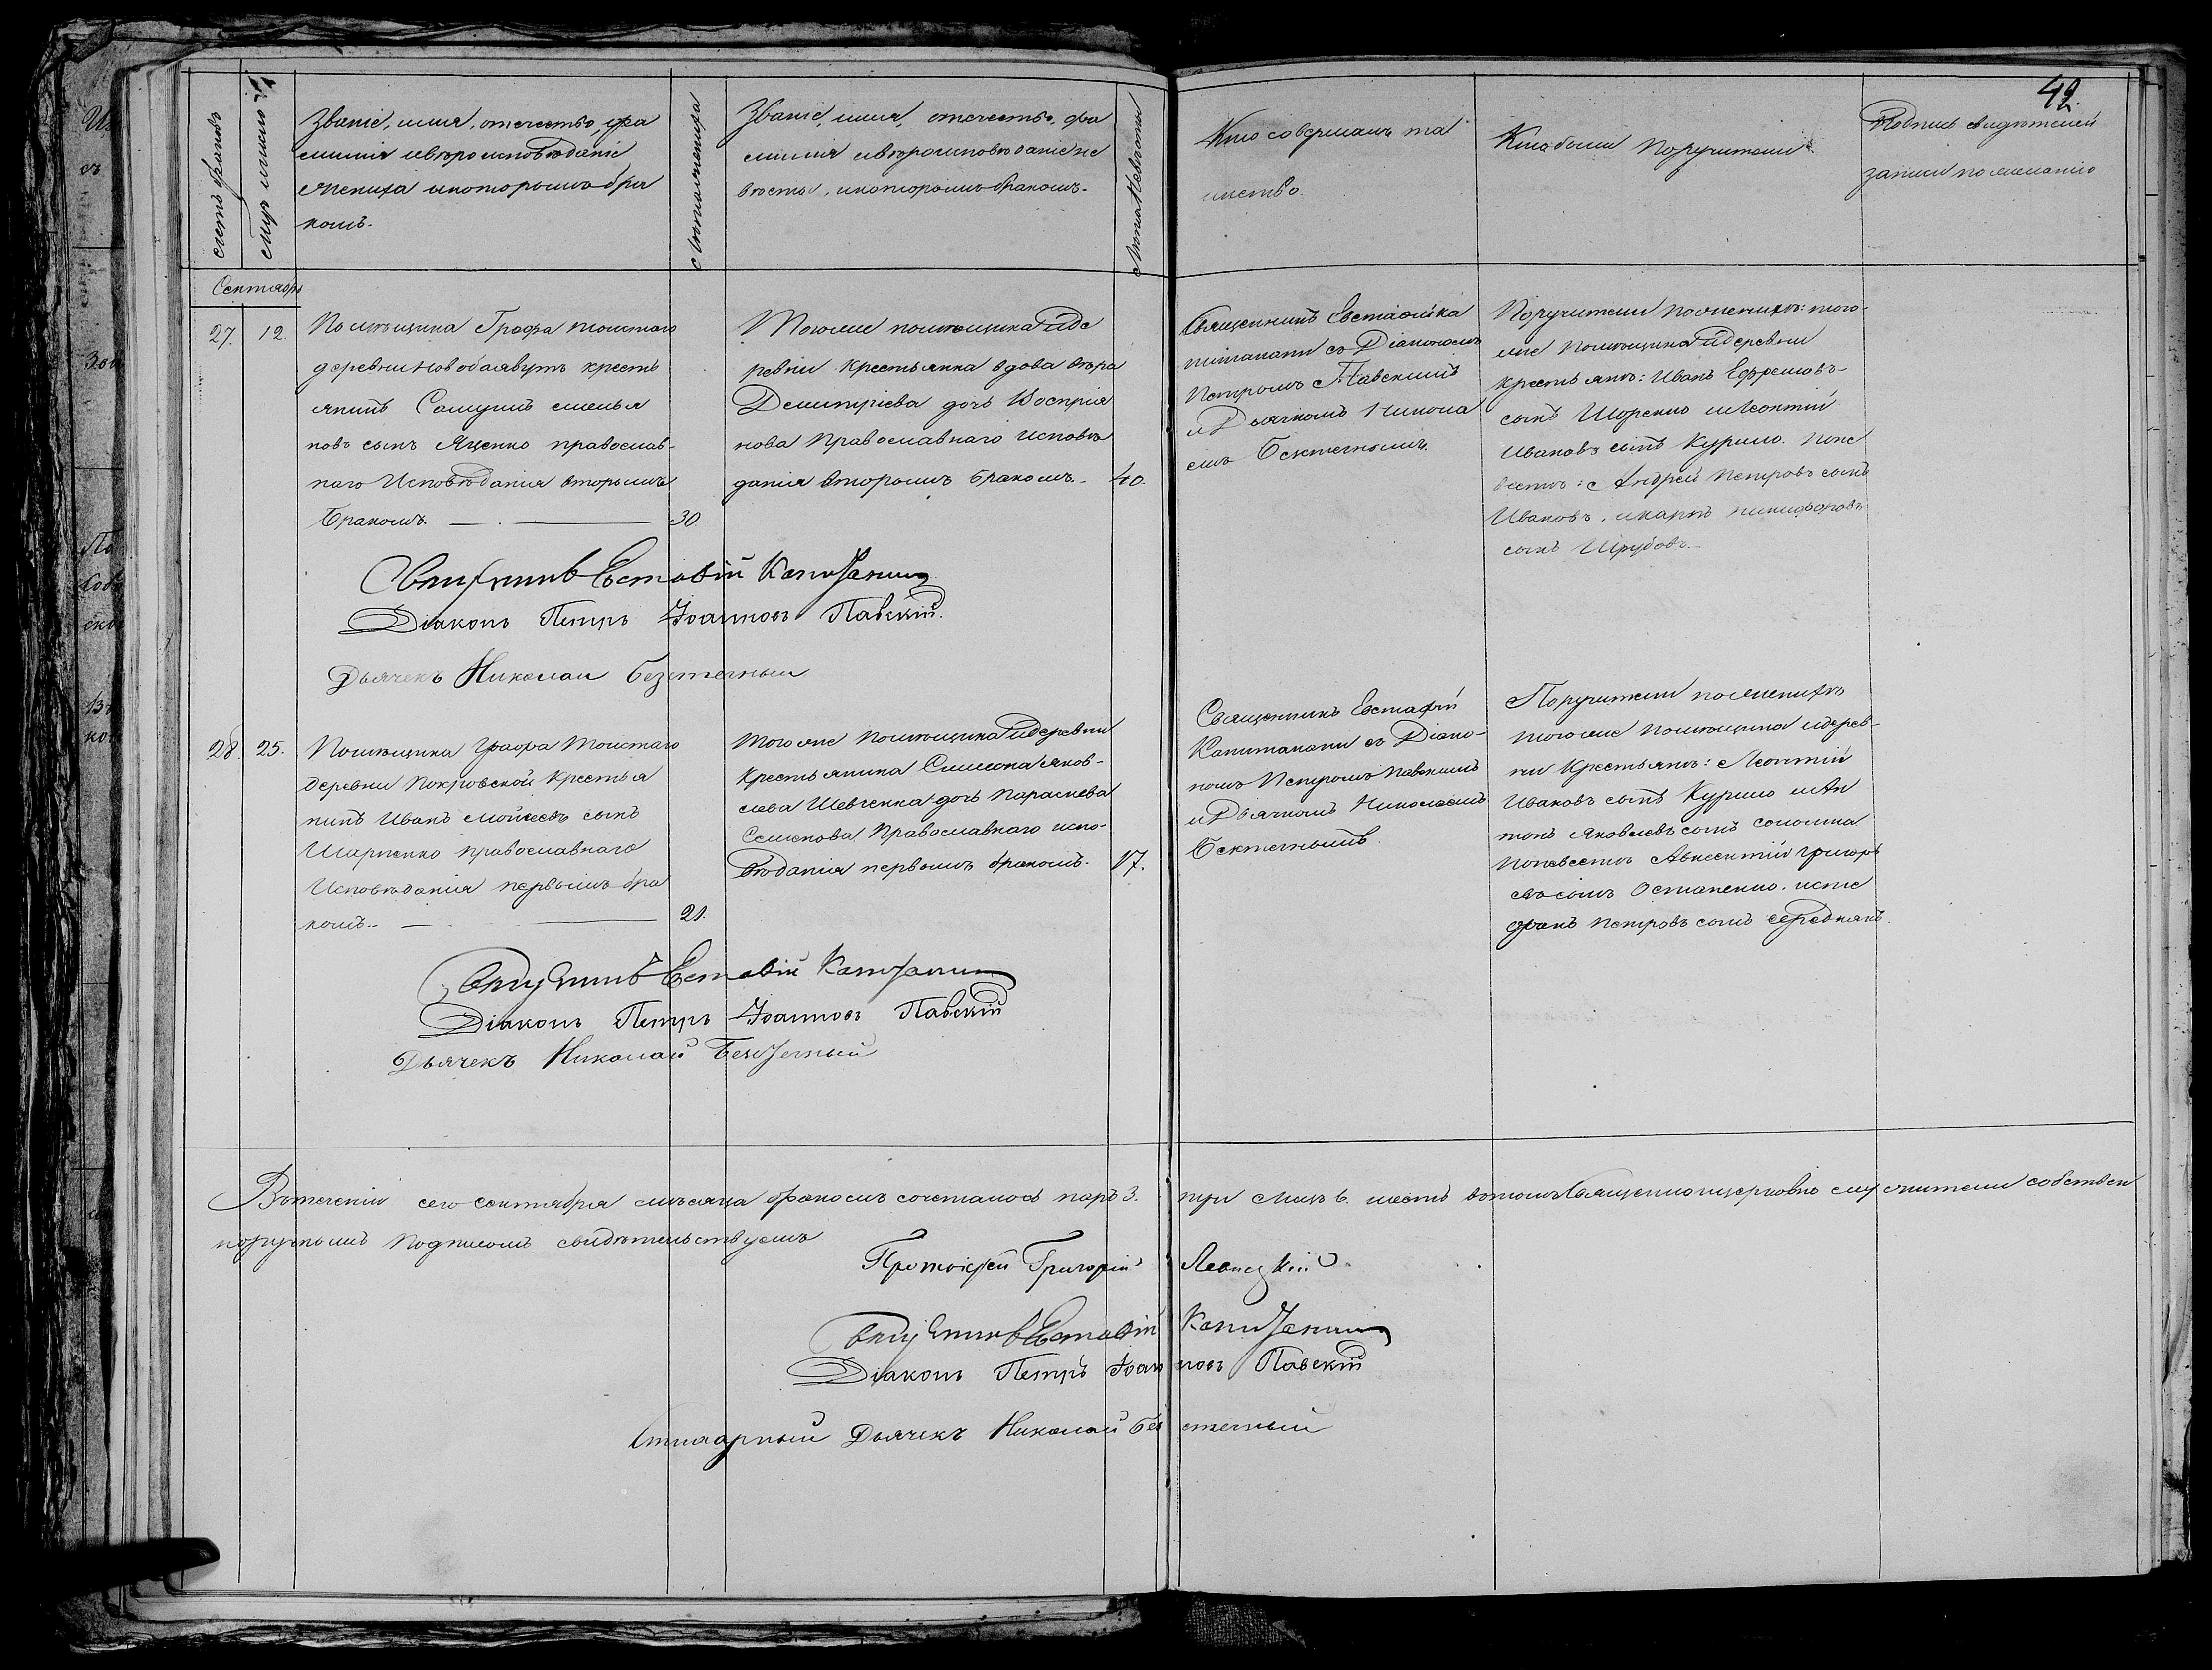 49.
счетъ браковъ
Мѣс. и число
Званіе, имя, отечество, фа
милія и вѣроисповѣданіе
жениха и которымъ бра
комъ.
Лѣта жениха
Званіе, имя, отечество, фа
милія и вѣроисповѣданіе не
вѣсты, и которымъ бракомъ.
Лѣта Невѣсты
Кто совершалъ та
инство.
Кто были Поручители
Подпись свидѣтелей
записи по желанію
Сентябрь
27. 12.
Помѣщика Графа толстаго
деревни Новобаявутъ кресть
янинъ Самуилъ емелья
новъ сынъ Яценко православ-
наго Исповѣданія вторымъ
бракомъ. — 30
Тогоже помѣщика и де
ревни крестьянка вдова вѣра
Демитріева дочь
нова Православнаго исповѣ
данія вторымъ бракомъ. 40.
Священникъ Евстафій ка
питанаки съ Діакономъ
Петромъ Павскимъ
и Дьячкомъ Никола
емъ Безктечнымъ.
Поручители по женихѣ: того-
же Помѣщика и деревни
крестьянъ: Иванъ Ефремовъ
сынъ Шоренко и Леонтій
Ивановъ сынъ Курило. По не
вѣстѣ: Андрей Петровъ сынъ
Ивановъ, и карпъ никифоровъ
сынъ Шрубовъ.
Священникъ Евстафій Капитанаки
Діаконъ Петръ Іоанновъ Павскій.
Дьячекъ Николаи Безстечныи
28. 25.
Помѣщика Графа Толстаго
деревни Покровской крестья
нинъ Иванъ Мойсеевъ сынъ
Шаріенко православнаго
Исповѣданія первымъ бра
комъ. — 21.
Того же Помѣщика и деревни
крестьянина Симеона яков-
лева Шевченка дочь Параскева
Семенова Православнаго испо-
вѣданія первымъ бракомъ. 17.
Священникъ Евстафій
Капитанаки съ Діако-
номъ Петромъ Павскимъ
и Дьячкомъ Николаемъ
Безктечнымъ.
Поручители по женихѣ
того же помѣщика и дерев-
ни Крестьянъ: Леонтій
Ивановъ сынъ Курило и Ан
тонъ Яковлевъ сынъ соломка
по невѣстѣ Авксентій Григорь
евъ сынъ Остапенко. и сте
фанъ Петровъ сынъ середнякъ.
Священникъ Евстафій Капитанаки
Діаконъ Петръ Іоанновъ Павскій
Дьячекъ Николай Безстечный
Въ теченіи сего сентября мѣсяца бракомъ сочеталось паръ 3. три лицъ 6. шесть въ томъ Священно и церковно служители собствен
норучнымъ Подписомъ свидѣтельствуемъ
Протоіерей Григорій
Священникъ Евстафій Капитанаки
Діаконъ Петръ Іоанновъ Павскій
Дьячекъ Николай Безстечный